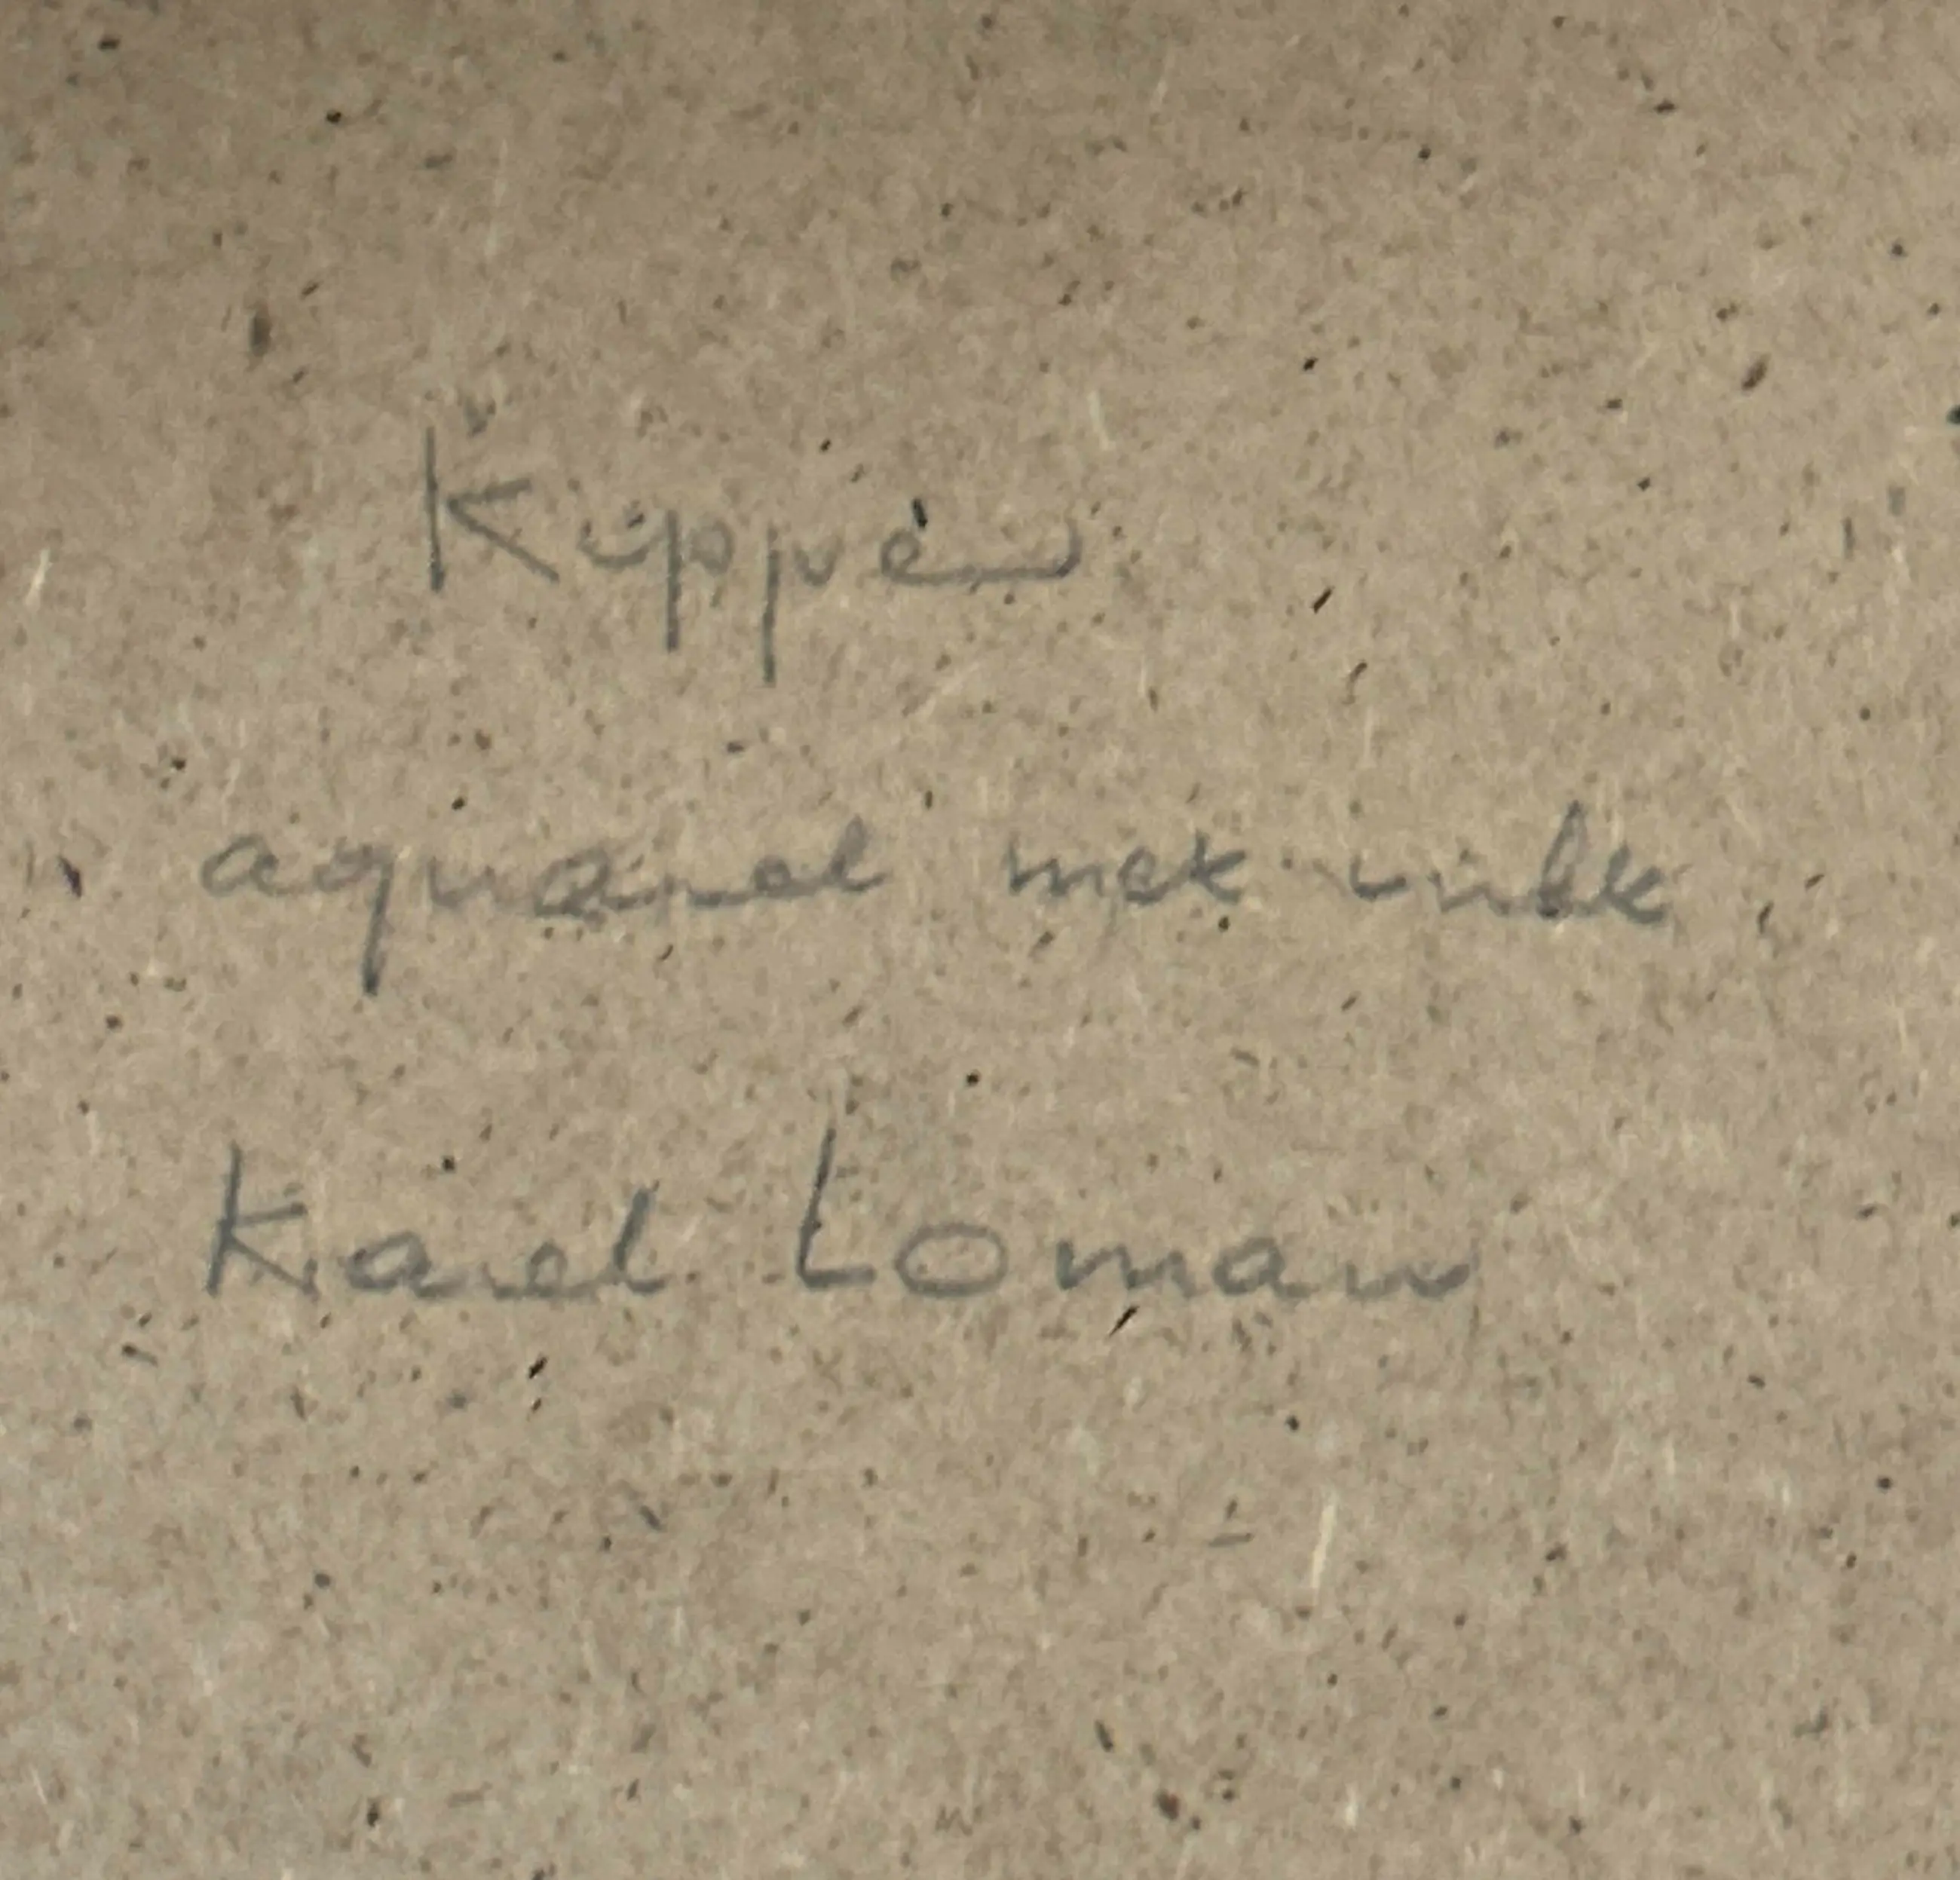 Kippen
aquarel met inkt
Karel Loman